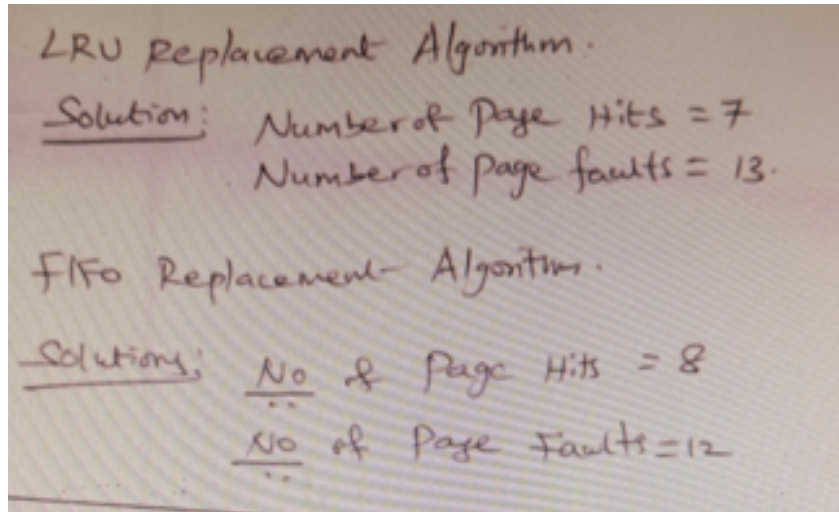 LRU Replacement Algorithm.
Solution: Number of Page Hits = 7
Number of page faults = 13.
FIFO Replacement Algorithm.
Solutions: No of Page Hits = 8
No of Page Faults = 12